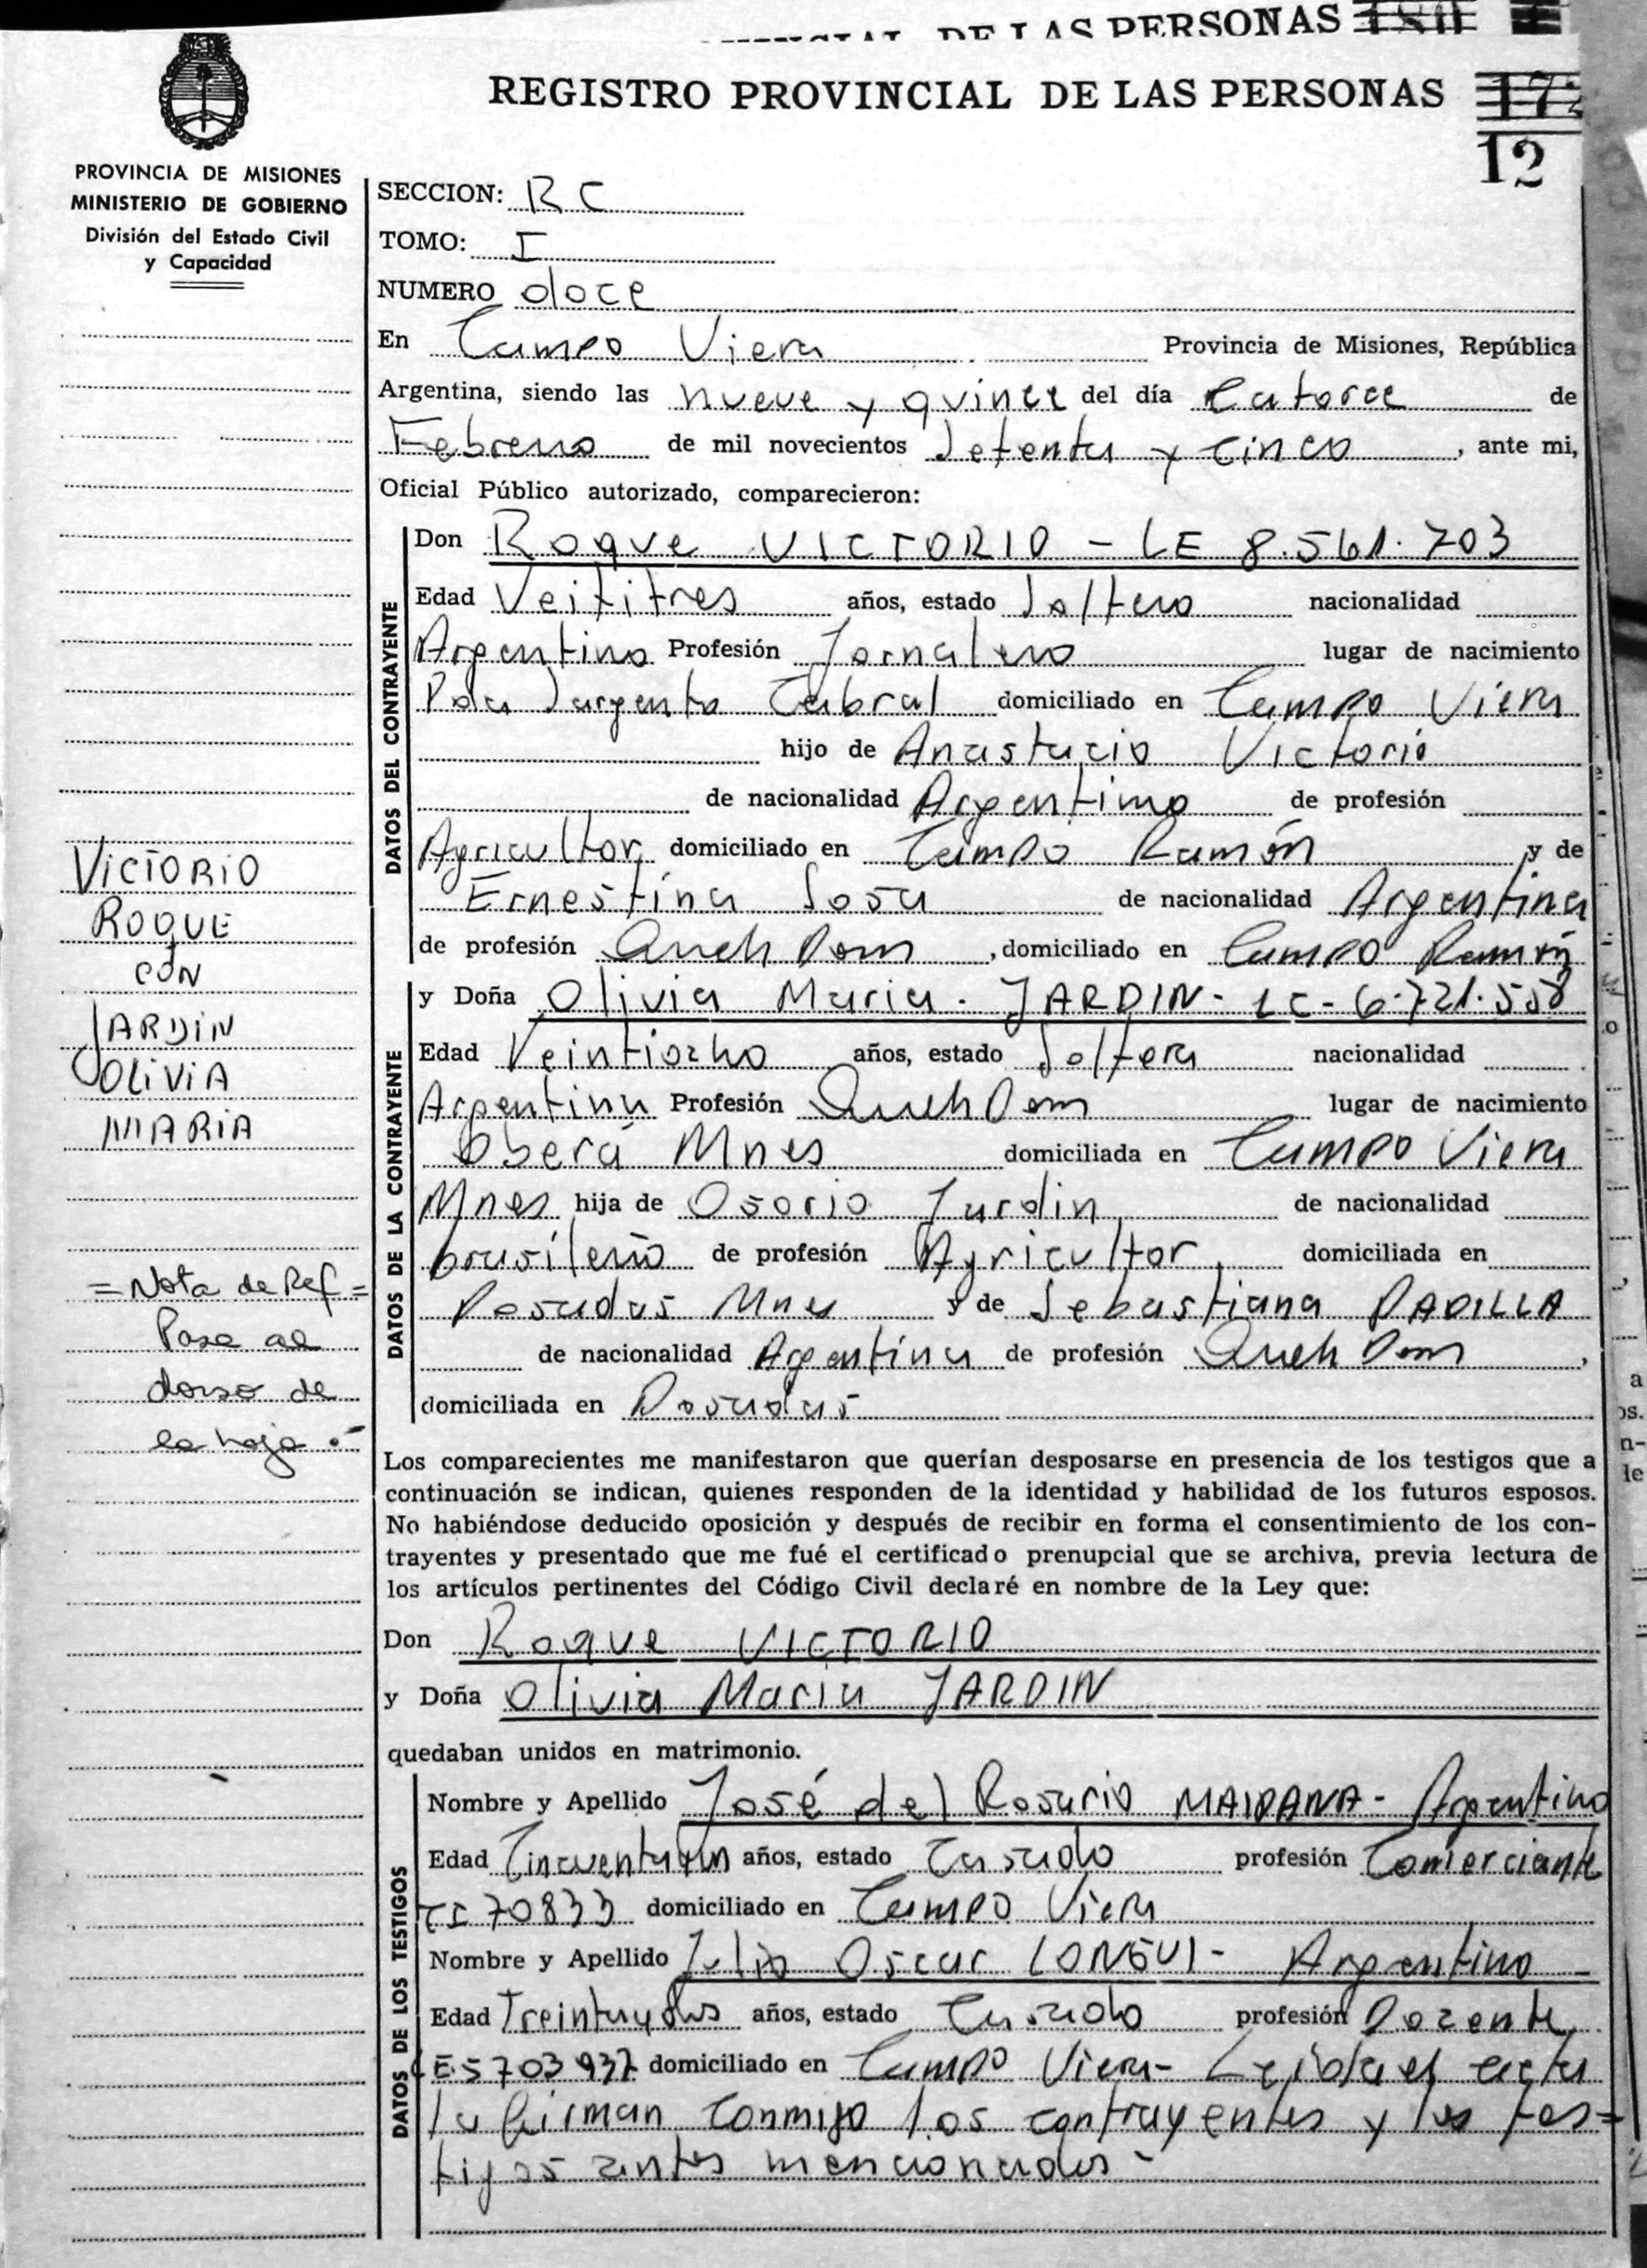 DE LAS PERSONAS
REGISTRO PROVINCIAL DE LAS PERSONAS
12
PROVINCIA DE MISIONES
MINISTERIO DE GOBIERNO
División del Estado Civil
y Capacidad
SECCION: RC
TOMO: I
NUMERO doce
En Campo Viera Provincia de Misiones, República
Argentina, siendo las nueve y quince del día Catorce de
Febrero de mil novecientos Setenta y cinco, ante mi,
Oficial Público autorizado, comparecieron:
DATOS DEL CONTRAYENTE
Don Roque VICTORIO - LE 8.561.703
Edad Veititres años, estado Soltero nacionalidad
Argentino Profesión Jornalero lugar de nacimiento
Pda Sargento Cabral domiciliado en Campo Viera
hijo de Anastacio Victorio
de nacionalidad Argentino de profesión
Agricultor domiciliado en Campo Ramón y de
Ernestina Sosa de nacionalidad Argentina
de profesión Queh Dom, domiciliado en Campo Ramón
DATOS DE LA CONTRAYENTE
y Doña Olivia Maria - JARDIN - LC - 6.721.558
Edad Veintiocho años, estado Soltera nacionalidad
Argentina Profesión Queh Dom lugar de nacimiento
Oberá Mnes domiciliada en Campo Viera
Mnes hija de Osorio Jardin de nacionalidad
brasileño de profesión Agricultor, domiciliada en
Posadas Mnes y de Sebastiana PADILLA
de nacionalidad Argentina de profesión Queh Dom,
domiciliada en Posadas
VICTORIO
ROQUE
CON
JARDIN
OLIVIA
MARIA
= Nota de Ref =
Pase al
dorso de
la hoja .-
Los comparecientes me manifestaron que querían desposarse en presencia de los testigos que a
continuación se indican, quienes responden de la identidad y habilidad de los futuros esposos.
No habiéndose deducido oposición y después de recibir en forma el consentimiento de los con-
trayentes y presentado que me fué el certificado prenupcial que se archiva, previa lectura de
los artículos pertinentes del Código Civil declaré en nombre de la Ley que:
Don Roque VICTORIO
y Doña Olivia Maria JARDIN
quedaban unidos en matrimonio.
DATOS DE LOS TESTIGOS
Nombre y Apellido José del Rosario MAIDANA - Argentino
Edad años, estado Casado profesión Comerciante
CI 70833 domiciliado en Campo Viera
Nombre y Apellido Julio Oscar - Argentino
Edad Treintaydos años, estado Casado profesión Docente
LE 5703937 domiciliado en Campo Viera - Leida el acta
la firman conmigo los contrayentes y los tes=
tigos antes mencionados -